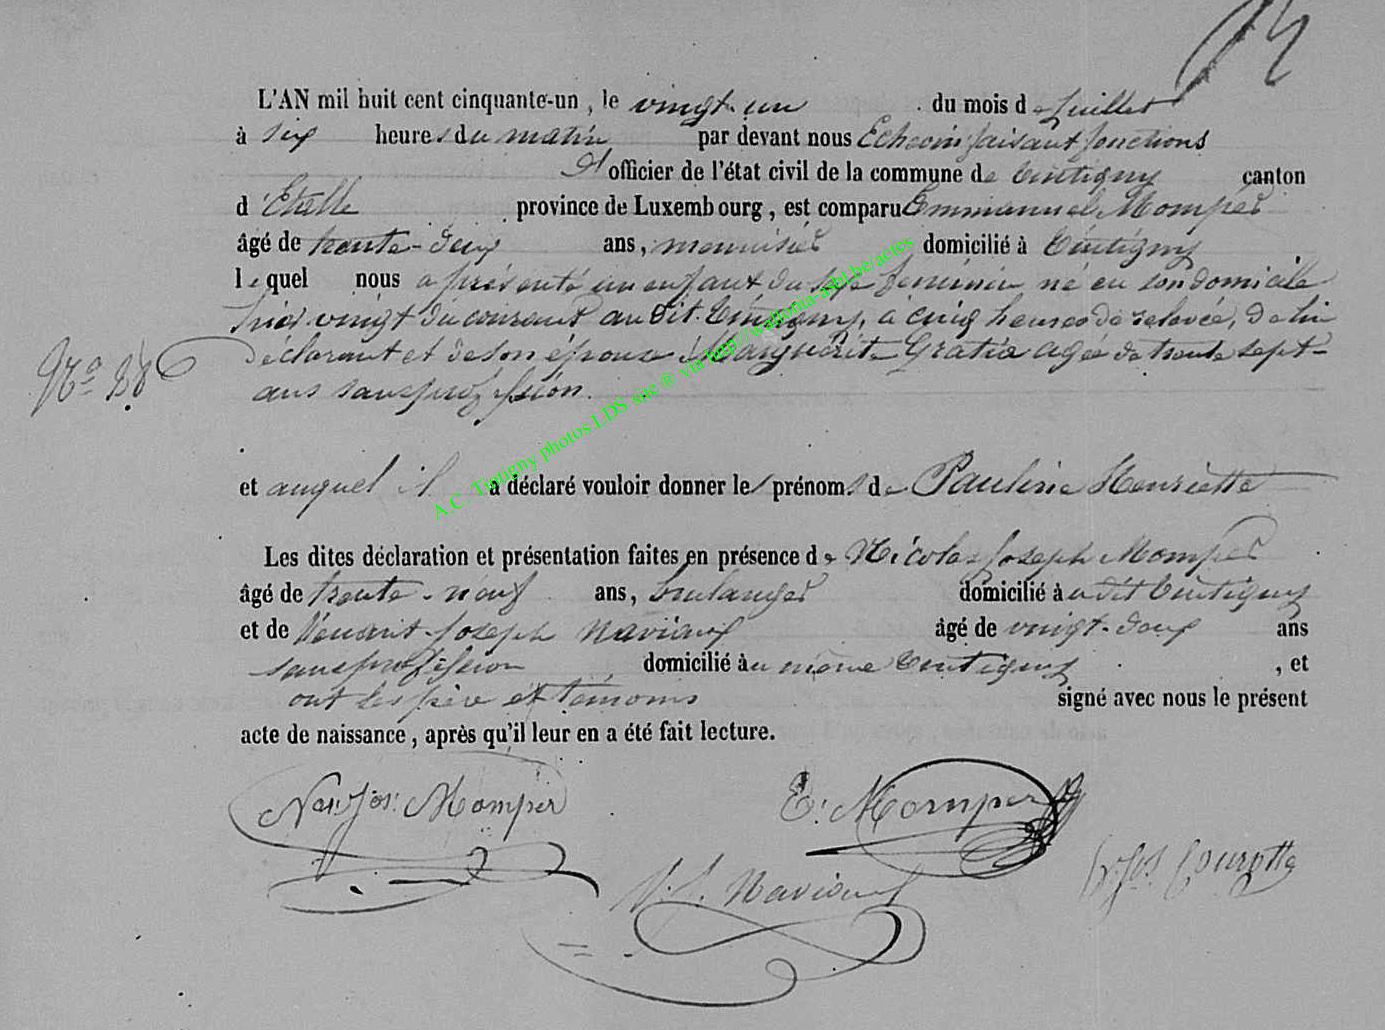 L'AN mil huit cent cinquante-un, le vingt-un du mois de Juillet
à six heures du matin par devant nous Echevin faisant fonctions
d'officier de l'état civil de la commune de Tintigny canton
d'Etalle province de Luxembourg, est comparu Emmanuel Momper
âgé de trente-deux ans, menuisier domicilié à Tintigny
lequel nous a présenté un enfant du sexe féminin né en son domicile
hier vingt du courant au dit Tintigny, à cinq heures de relevée, de lui
N° 28 déclarant et de son épouse Marguerite Gratia agée de trente sept
ans sans profession.
et auquel il a déclaré vouloir donner les prénoms de Pauline Henriette
Les dites déclaration et présentation faites en présence de Nicolas Joseph Momper
âgé de trente-neuf ans, boulanger domicilié audit Tintigny
et de Joseph Naviaux âgé de vingt-deux ans
sans profession domicilié au même Tintigny, et
ont les père et témoins signé avec nous le présent
acte de naissance, après qu'il leur en a été fait lecture.
Nas. Jos. Momper E. Momper
Jos. Courotte
J. Naviaux
A.C. Tintigny photos LDS site ® via http://wallonia-asbl.be/actes